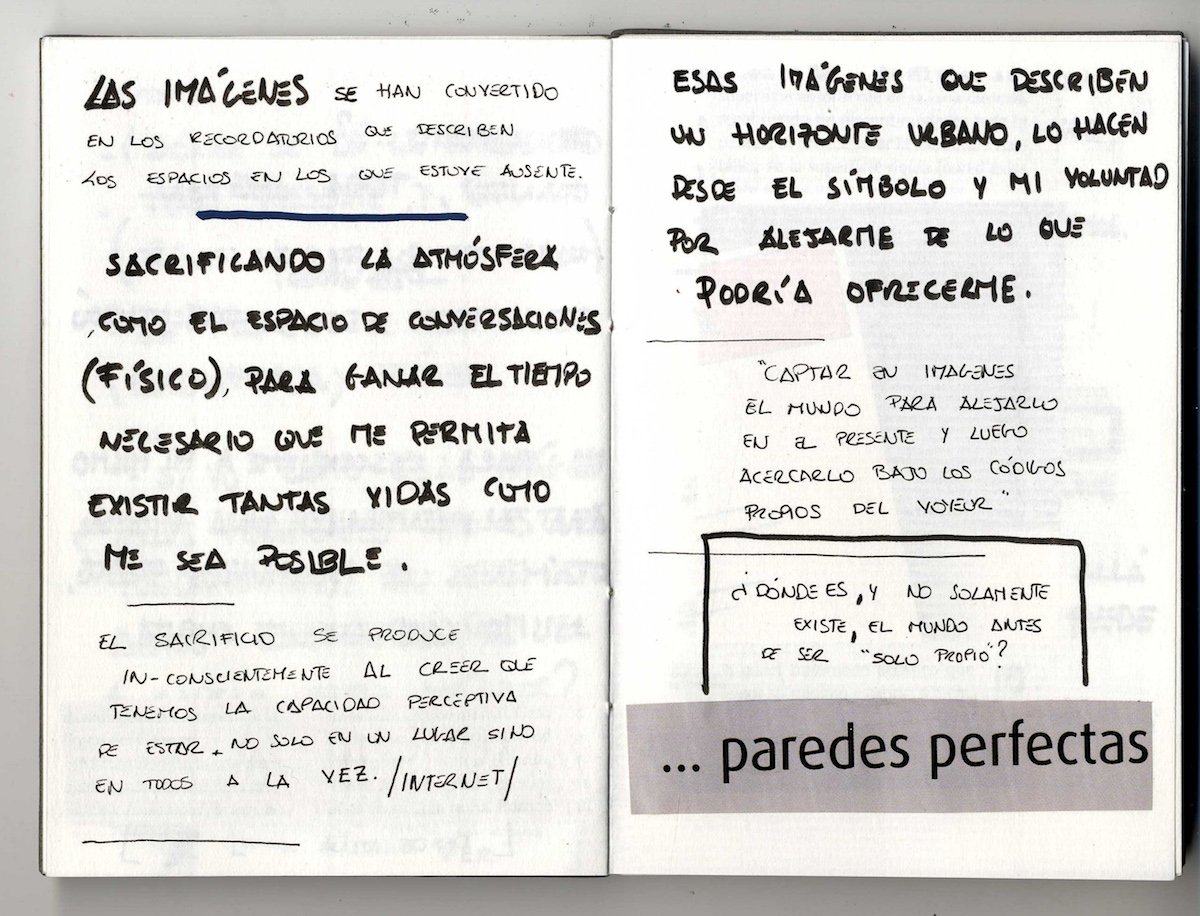 LAS IMÁGENES SE HAN CONVERTIDO
EN LOS RECORDATORIOS QUE DESCRIBEN
LOS ESPACIOS EN LOS QUE ESTUVE AUSENTE.
SACRIFICANDO LA ATMÓSFERA
COMO EL ESPACIO DE CONVERSACIONES
(FÍSICO), PARA GANAR EL TIEMPO
NECESARIO QUE ME PERMITA
EXISTIR TANTAS VIDAS COMO
ME SEA POSIBLE.
EL SACRIFICIO SE PRODUCE
IN-CONSCIENTEMENTE AL CREER QUE
TENEMOS LA CAPACIDAD PERCEPTIVA
DE ESTAR, NO SOLO EN UN LUGAR SINO
EN TODOS A LA VEZ. /INTERNET/
ESAS IMÁGENES QUE DESCRIBEN
UN HORIZONTE URBANO, LO HACEN
DESDE EL SÍMBOLO Y MI VOLUNTAD
POR ALEJARME DE LO QUE
PODRÍA OFRECERME.
"CAPTAR EN IMAGENES
EL MUNDO PARA ALEJARLO
EN EL PRESENTE Y LUEGO
ACERCARLO BAJO LOS CÓDIGOS
PROPIOS DEL VOYEUR"
¿DÓNDE ES, Y NO SOLAMENTE
EXISTE, EL MUNDO ANTES
DE SER "SOLO PROPIO"?
... paredes perfectas